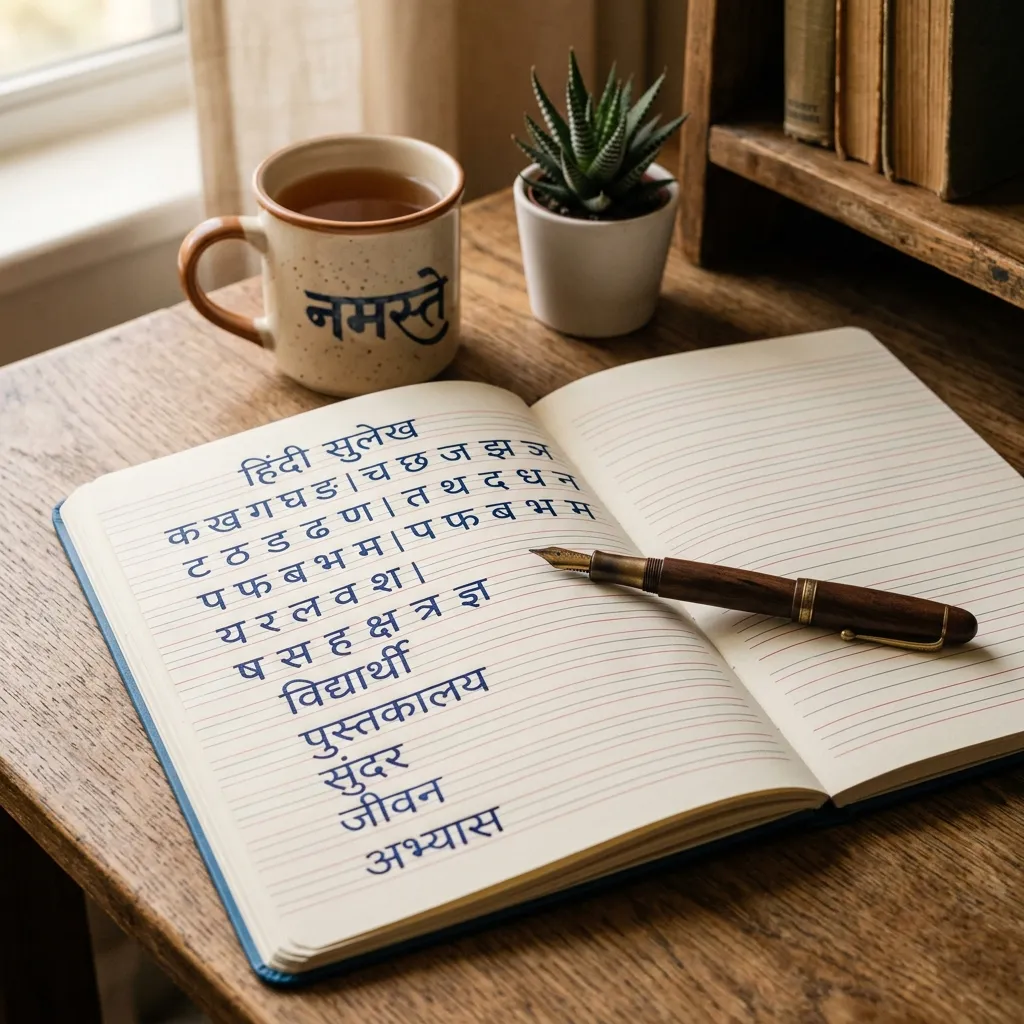 नमस्ते
हिंदी सुलेख
क ख ग घ ङ । च छ ज झ ञ
ट ठ ड ढ ण । त थ द ध न
प फ ब भ म । प फ ब भ म
य र ल व श ।
ष स ह क्ष त्र ज्ञ
विद्यार्थी
पुस्तकालय
सुंदर
जीवन
अभ्यास